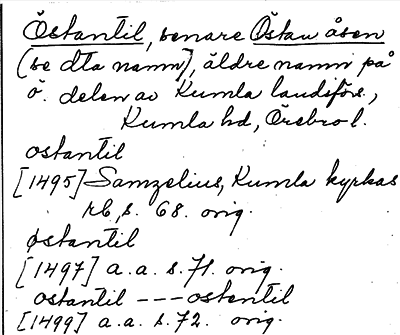 Östantil, senare Östan åsen
(se dta namn), äldre namn på
ö. delen av Kumla landsförs.,
Kumla hd, Örebro l.
ostantil
[1495] Samzelius, Kumla kyrkas
rb, s. 68. orig.
østantil
[1497] a.a. s. 71. orig.
ostantil --- ostentil
[1499] a.a. s. 72. orig.